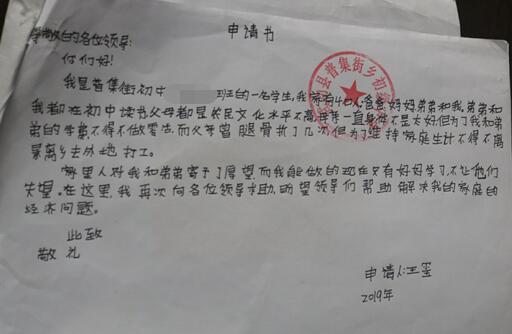 申请书
尊敬的各位领导:
你们好!
我是普集街初中 班的一名学生,我家有4口人,爸爸妈妈弟弟和我。弟弟和
我都在初中读书父母都是农民文化水平不高,再 一直身体不是太好但为了我和弟
弟的学费不得不做零活,而父 曾腿骨折了几次但为了维持家庭生计不得不离
家离乡去外地打工。
家里人对我和弟弟寄予了厚望,而我能做的现在只有好好学习,不让他们
失望。在这里,我再次向各位领导求助,盼望领导们帮助解决我的家庭的
经济问题。
此致
敬礼
申请人:王
2019年
县普集街乡初级